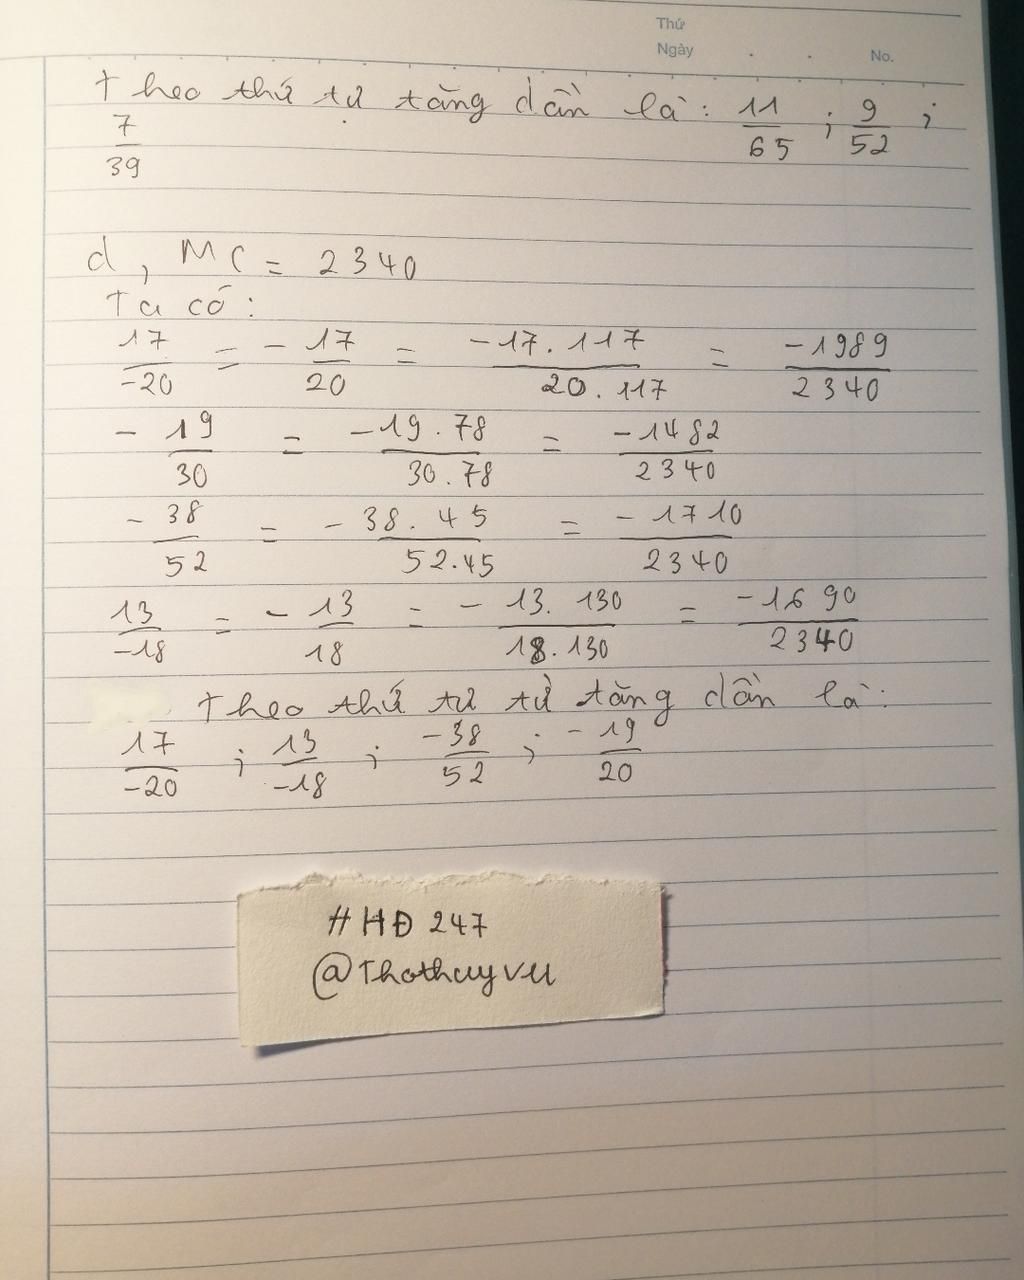 Thứ
Ngày . . No.
Theo thứ tự tăng dần là: 11/65 ; 9/52 ;
7/39
d, MC = 2340
Ta có:
17/-20 = -17/20 = -17.117/20.117 = -1989/2340
-19/30 = -19.78/30.78 = -1482/2340
-38/52 = -38.45/52.45 = -1710/2340
13/-18 = -13/18 = -13.130/18.130 = -1690/2340
Theo thứ tư từ tăng dần là:
17/-20 ; 13/-18 ; -38/52 ; -19/20
#HĐ 247
@Thothuyvu